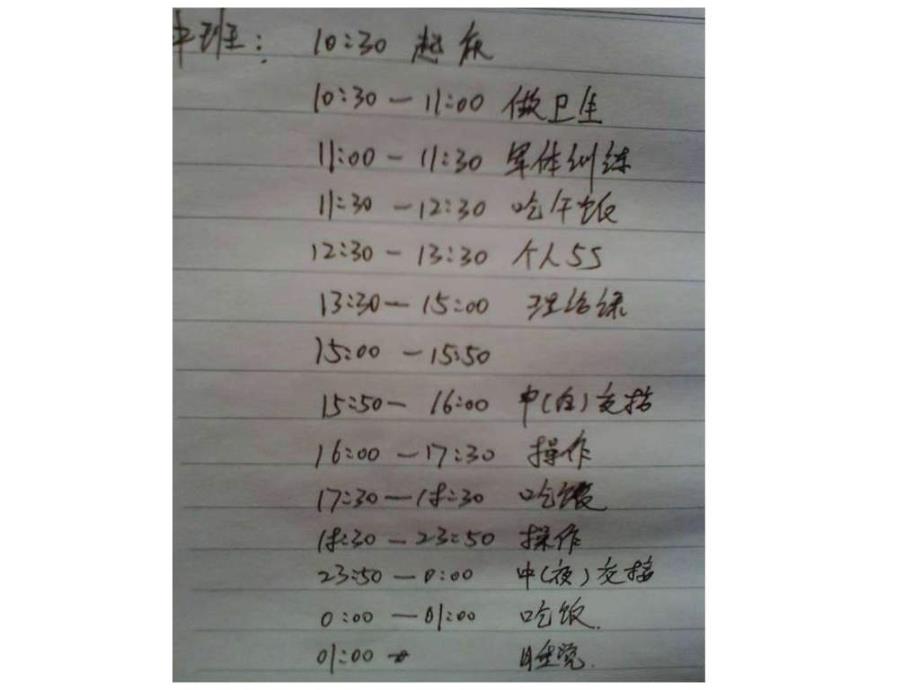 中班: 10:30 起床
10:30 — 11:00 做卫生
11:00 — 11:30 军体训练
11:30 — 12:30 吃午饭
12:30 — 13:30 个人5S
13:30 — 15:00 理论课
15:00 — 15:50
15:50 — 16:00 中(白)交接
16:00 — 17:30 操作
17:30 — 18:30 吃饭
18:30 — 23:50 操作
23:50 — 0:00 中(夜)交接
0:00 — 01:00 吃饭.
01:00 — 睡觉.